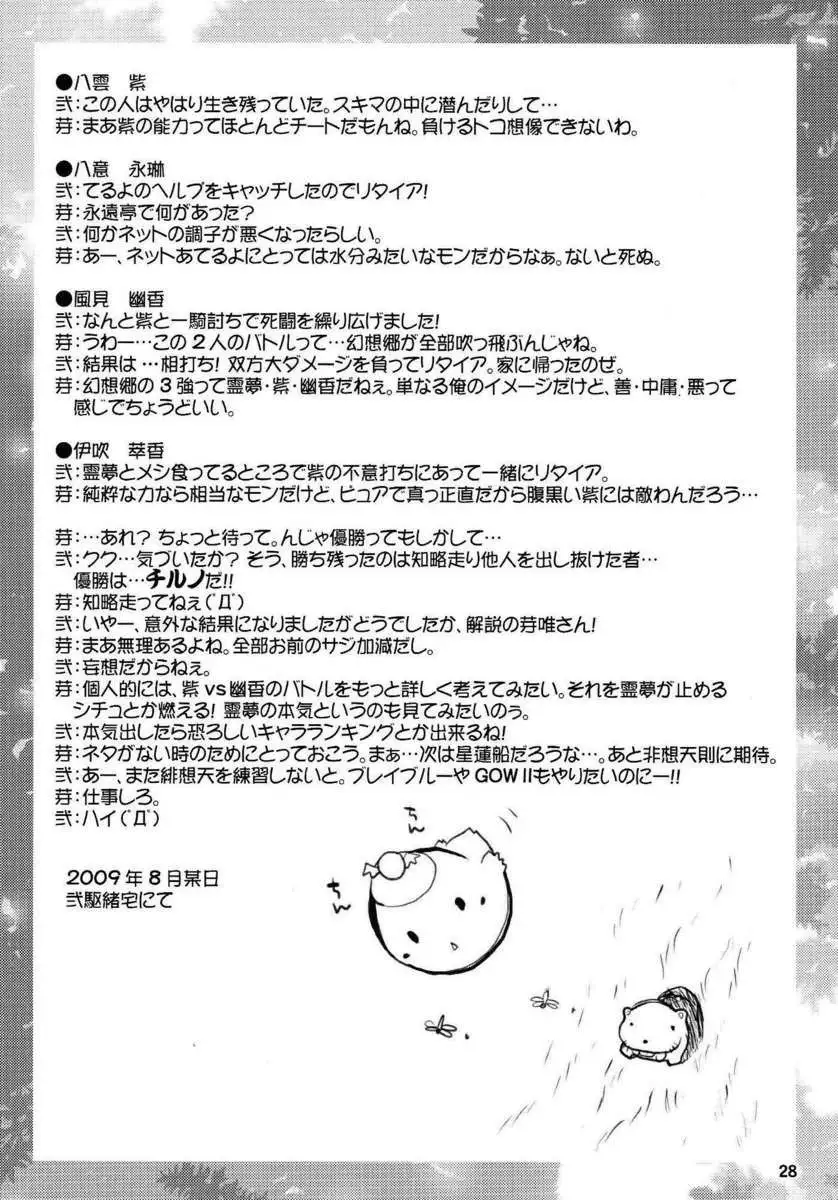 ●八雲 紫
弐：この人はやはり生き残っていた。スキマの中に潜んだりして…
芽：まあ紫の能力ってほとんどチートだもんね。負けるトコ想像できないわ。
●八意 永琳
弐：てるよのヘルプをキャッチしたのでリタイア！
芽：永遠亭で何があった？
弐：何かネットの調子が悪くなったらしい。
芽：あー、ネットあてるよにとっては水分みたいなモンだからなぁ。ないと死ぬ。
●風見 幽香
弐：なんと紫と一騎討ちで死闘を繰り広げました！
芽：うわー…この２人のバトルって…幻想郷が全部吹っ飛ぶんじゃね。
弐：結果は…相打ち！ 双方大ダメージを負ってリタイア。家に帰ったのぜ。
芽：幻想郷の３強って霊夢・紫・幽香だねぇ。単なる俺のイメージだけど、善・中庸・悪って
感じでちょうどいい。
●伊吹 萃香
弐：霊夢とメシ食ってるところで紫の不意打ちにあって一緒にリタイア。
芽：純粋な力なら相当なモンだけど、ピュアで真っ正直だから腹黒い紫には敵わんだろう…
芽：…あれ？ ちょっと待って。んじゃ優勝ってもしかして…
弐：クク…気づいたか？ そう、勝ち残ったのは知略走り他人を出し抜けた者…
優勝は…チルノだ!!
芽：知略走ってねぇ(ﾟДﾟ)
弐：いやー、意外な結果になりましたがどうでしたか、解説の芽唯さん！
芽：まあ無理あるよね。全部お前のサジ加減だし。
弐：妄想だからねぇ。
芽：個人的には、紫vs幽香のバトルをもっと詳しく考えてみたい。それを霊夢が止める
シチュとか燃える！ 霊夢の本気というのも見てみたいのぅ。
弐：本気出したら恐ろしいキャラランキングとか出来るね！
芽：ネタがない時のためにとっておこう。まぁ…次は星蓮船だろうな…。あと非想天則に期待。
弐：あー、また緋想天を練習しないと。ブレイブルーやGOWⅡもやりたいのにー!!
芽：仕事しろ。
弐：ハイ(ﾟДﾟ)
ちん
ちん
2009年8月某日
弐駆緒宅にて
28